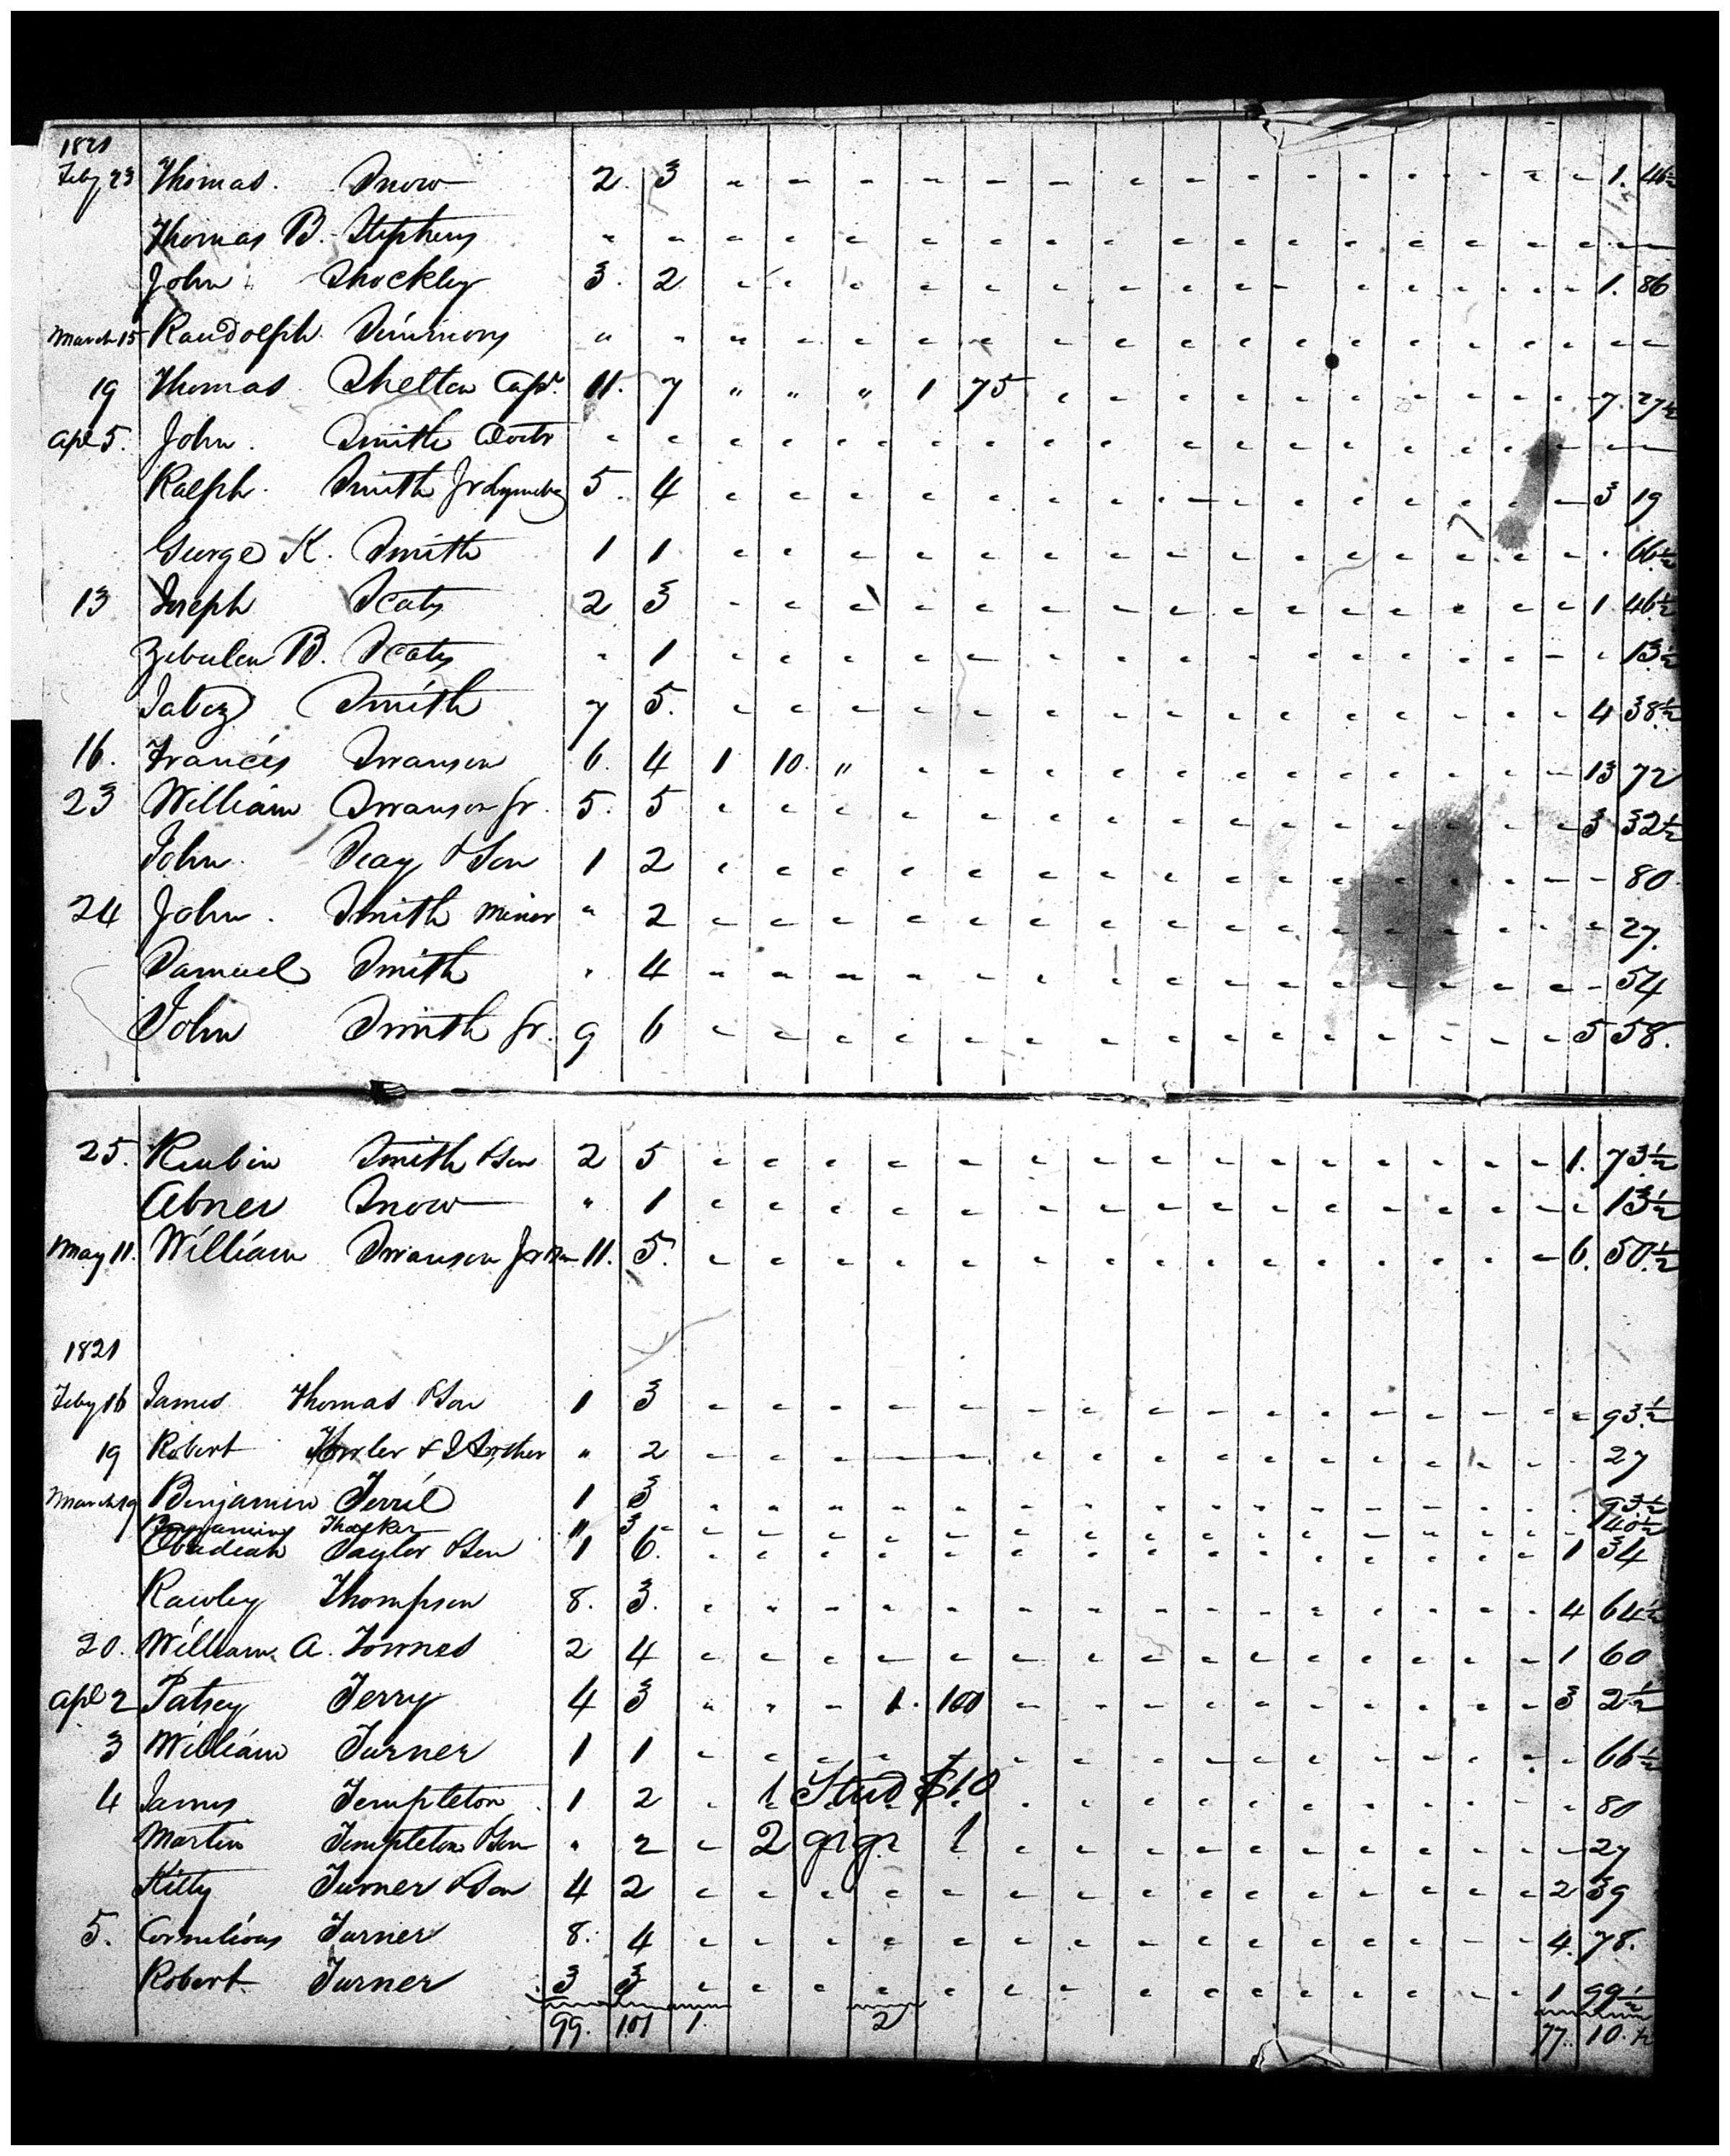 1821
Feby 23 Thomas Snow 2 3 1. 46½
Thomas B. Stephens
John Shockley 3. 2 1. 86
March 15 Randolph Simmons
19 Thomas Shelton Capt. 11. 7 " " " 1 75 7. 27½
Apl 5. John Smith Doctr
Ralph Smith Jr 5. 4 3 19
George K. Smith 1 1 66½
13 Joseph Scates 2 3 1 46½
Zebulon B. Scates 1 13½
Jabez Smith 7 5. 4 38½
16. Francis Swanson 6. 4 1 10. " 13 72
23 William Swanson Sr. 5. 5 3 32½
John Seay & Son 1 2 80
24 John Smith minor " 2 27.
Samuel Smith 4 54
John Smith Sr. 9 6 5 58.
25. Reubin Smith & Son 2 5 1. 73½
Abner Snow " 1 13½
May 11. William Swanson Jr 11. 5. 6. 50½
1821
Feby 16 James Thomas & Son 1 3 93½
19 Robert & Brother " 2 27
March 19 Benjamin Terril 1 3 93½
Benjamin Thacker " 3 40½
Obadiah Taylor & Son 1 6. 1 34
Rawley Thompson 8. 3. 4 64½
20. William A. Townes 2 4 1 60
Apl 2 Patsey Terry 4 3 1. 100 3 2½
3 William Turner 1 1 66½
4 James Templeton 1 2 1 Stud $10 80
Martin Templeton & Son " 2 2 gigs 1 27
Kitty Turner & Son 4 2 2 39
5. Cornelious Turner 8. 4 4. 78.
Robert Turner 3 3 1 99½
99. 101 1. 2 77. 10.½